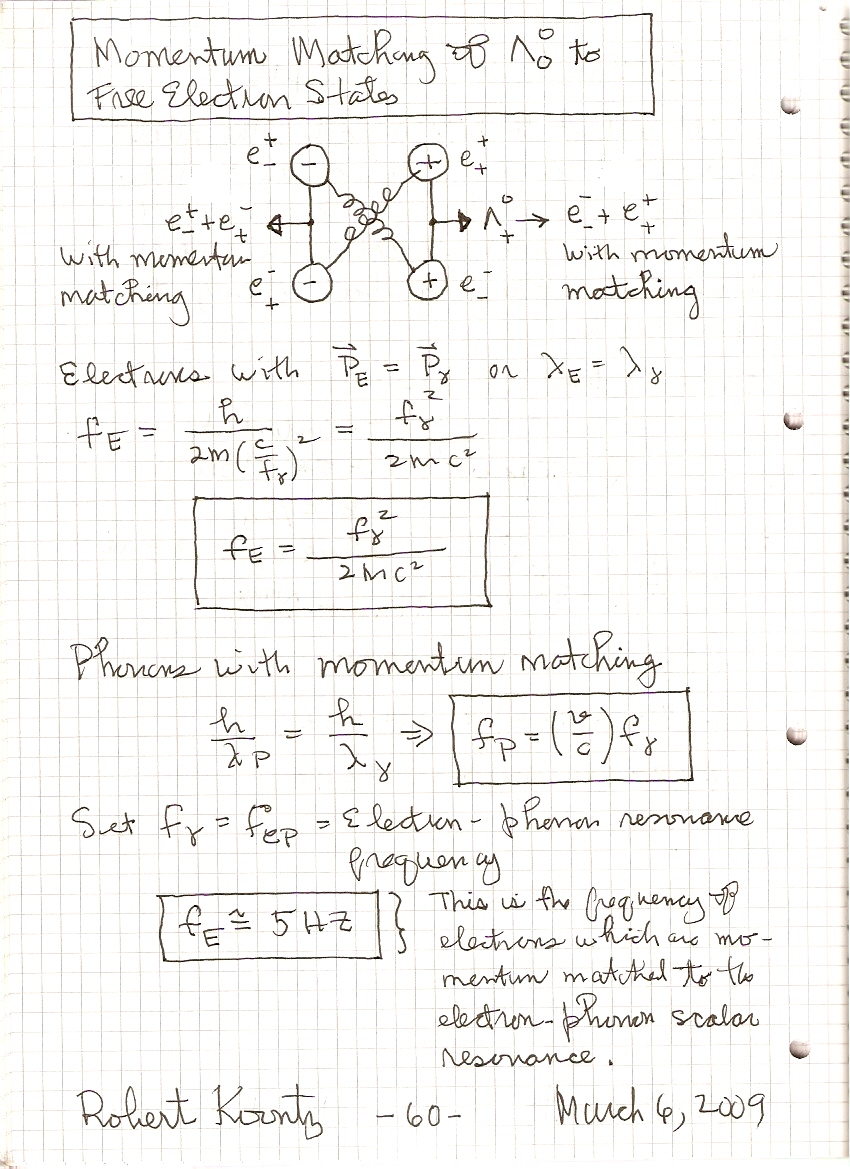 Momentum Matching of Λ₀⁰ to
Free Electron States
e₋⁺ − + e₊⁺
e₋⁺ + e₊⁻ Λ₊⁰ → e₋⁻ + e₊⁺
with momentum
matching
with momentum
matching
e₊⁻ − + e₋⁻
Electrons with P⃗_E = P⃗_γ or λ_E = λ_γ
f_E = h / 2m(c/f_γ)² = f_γ² / 2mc²
f_E = f_γ² / 2mc²
Phonons with momentum matching
h/λ_P = h/λ_γ ⇒ f_P = (v/c) f_γ
Set f_γ = f_eP = Electron-phonon resonance
frequency
f_E ≅ 5 HZ } This is the frequency of
electrons which are mo-
mentum matched to the
electron-phonon scalar
resonance.
Robert Koontz -60- March 6, 2009